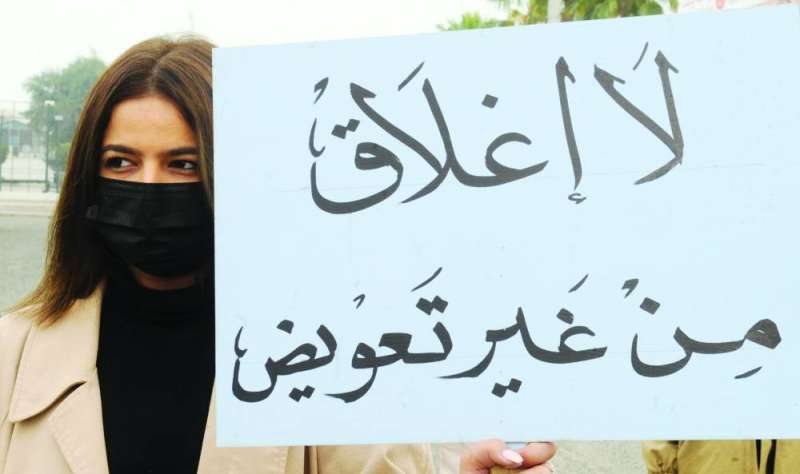 لَا إغلَاق
مِنْ غَير تَعوْيض